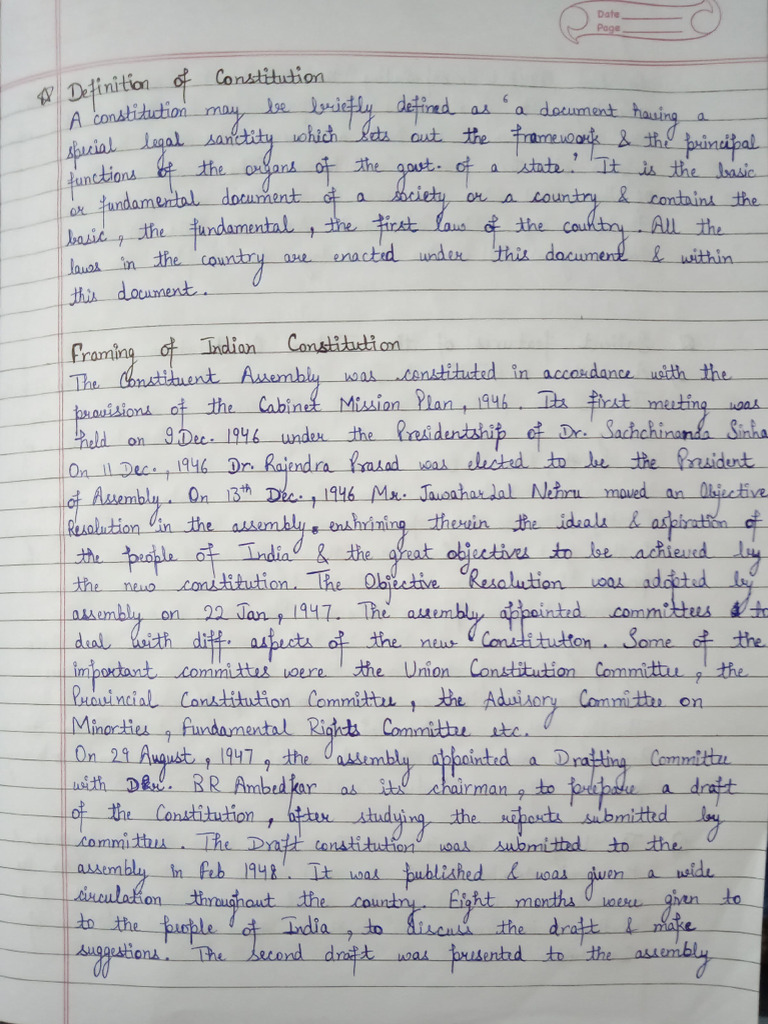 Date
Page
☆ Definition of Constitution
A constitution may be briefly defined as 'a document having a
special legal sanctity which sets out the framework & the principal
functions of the organs of the govt. of a state.' It is the basic
or fundamental document of a society or a country & contains the
basic, the fundamental, the first law of the country. All the
laws in the country are enacted under this document & within
this document.
Framing of Indian Constitution
The Constituent Assembly was constituted in accordance with the
provisions of the Cabinet Mission Plan, 1946. Its first meeting was
held on 9 Dec. 1946 under the Presidentship of Dr. Sachchinanda Sinha
On 11 Dec., 1946 Dr. Rajendra Prasad was elected to be the President
of Assembly. On 13th Dec., 1946 Mr. Jawaharlal Nehru moved an Objective
Resolution in the assembly. enshrining therein the ideals & aspiration of
the people of India & the great objectives to be achieved by
the new constitution. The Objective Resolution was adopted by
assembly on 22 Jan, 1947. The assembly appointed committees to
deal with diff. aspects of the new Constitution. Some of the
important committes were the Union Constitution Committee, the
Provincial Constitution Committee, the Advisory Committee on
Minorties, Fundamental Rights Committee etc.
On 29 August, 1947, the assembly appointed a Drafting Committee
with Dr. BR Ambedkar as its chairman, to prepare a draft
of the Constitution, after studying the reports submitted by
committees. The Draft constitution was submitted to the
assembly in Feb 1948. It was published & was given a wide
circulation throughout the country. Eight months were given to
to the people of India, to discuss the draft & make
suggestions. The second draft was presented to the assembly